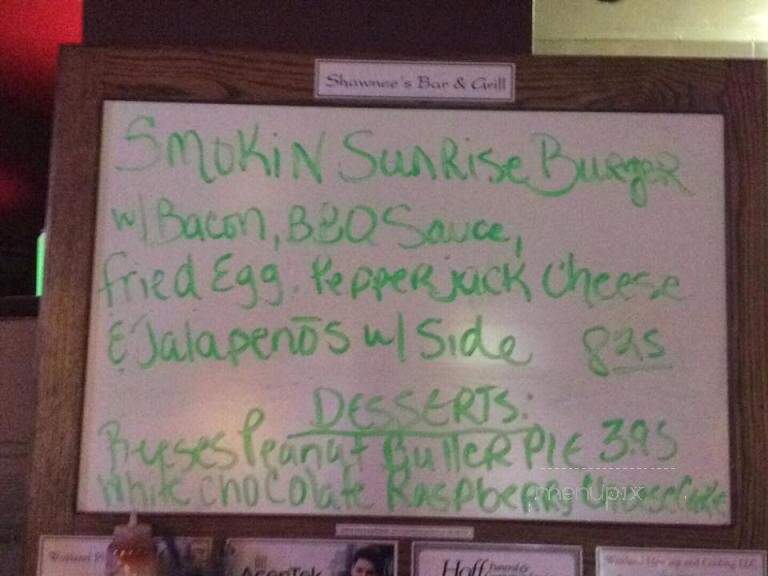 Shawnee's Bar & Grill
Smokin Sunrise Burger
w/ Bacon, BBQ Sauce,
fried Egg. Pepperjack Cheese
& Jalapenōs w/ Side 825
DESSERTS:
Reeses Peanut Butter PIE 3.95
White Chocolate Raspberry Cheesecake
menupix
AccenTek
Hoff